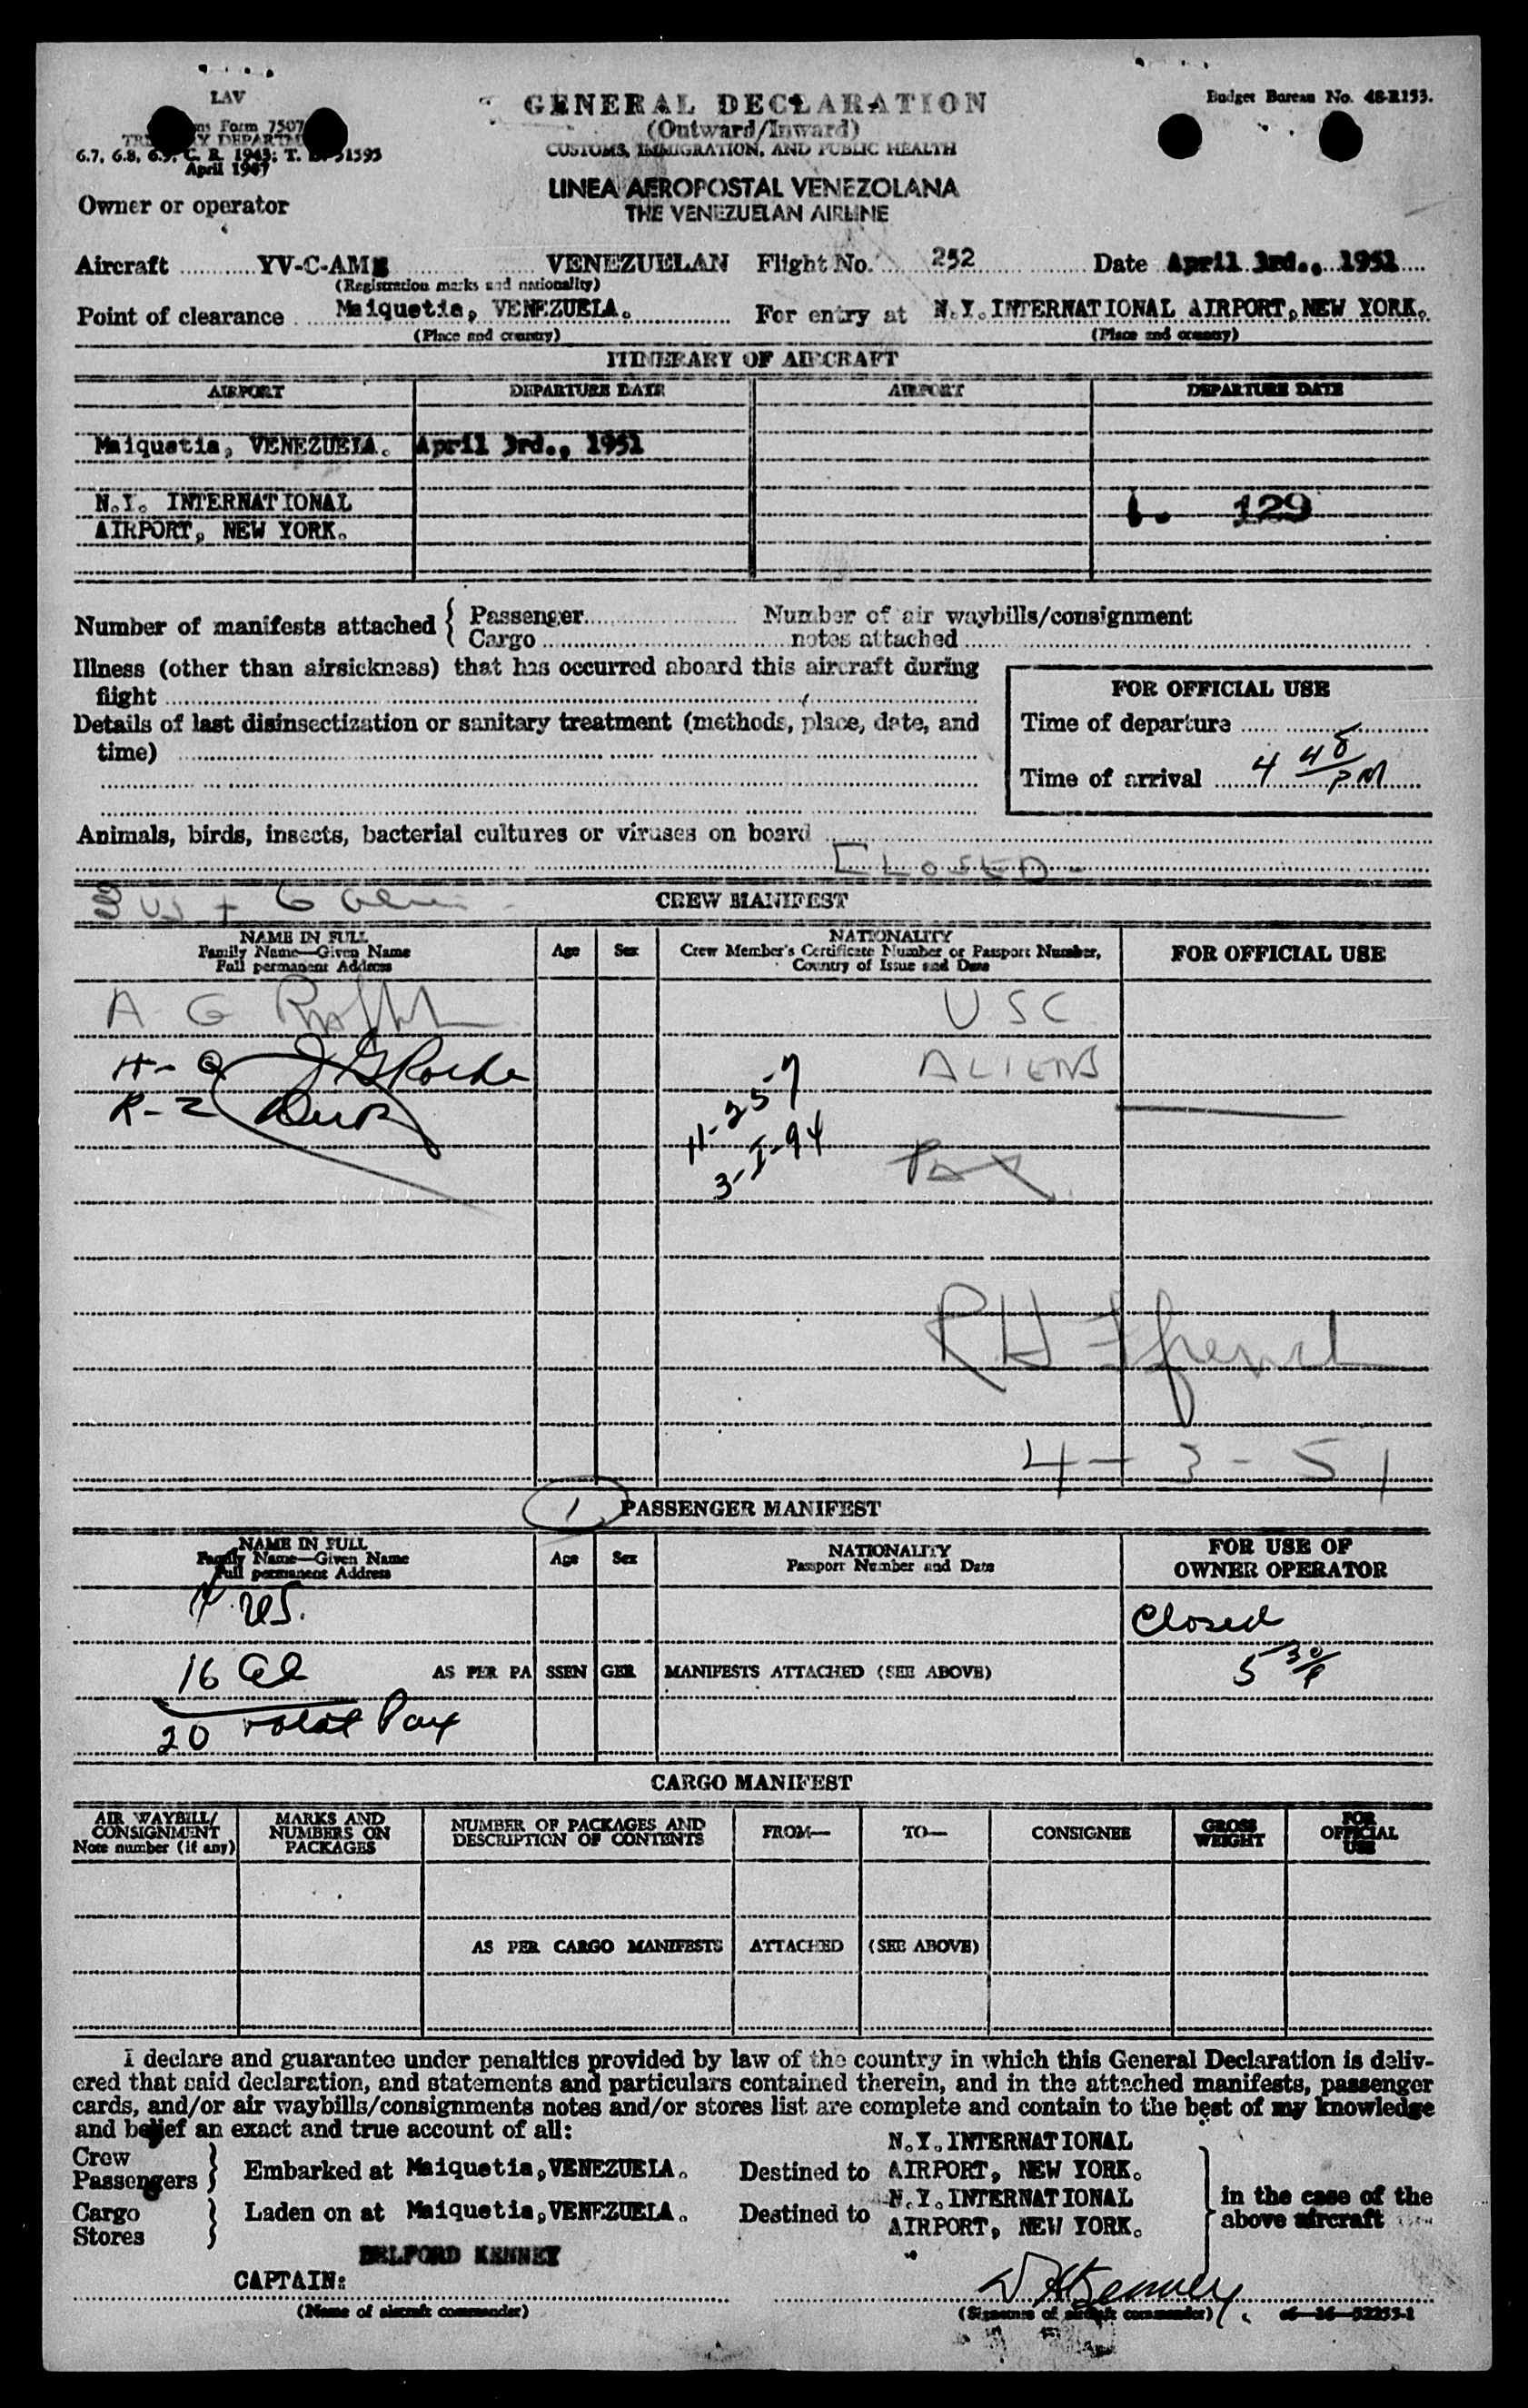 LAV
GENERAL DECLARATION
Budget Bureau No. 48-R153.
Form 7507
(Outward/Inward)
6.7, 6.8, 6.9, C. R. 1943; T. D. 51595
CUSTOMS, IMMIGRATION, AND PUBLIC HEALTH
April 1947
LINEA AEROPOSTAL VENEZOLANA
Owner or operator
THE VENEZUELAN AIRLINE
Aircraft YV-C-AM VENEZUELAN Flight No. 252 Date April 3rd., 1951
(Registration marks and nationality)
Point of clearance Maiquetia, VENEZUELA. For entry at N.Y. INTERNATIONAL AIRPORT, NEW YORK.
(Place and country) (Place and country)
ITINERARY OF AIRCRAFT
AIRPORT DEPARTURE DATE AIRPORT DEPARTURE DATE
Maiquetia, VENEZUELA. April 3rd., 1951
N.Y. INTERNATIONAL
129
AIRPORT, NEW YORK.
Number of manifests attached { Passenger Number of air waybills/consignment
Cargo notes attached
Illness (other than airsickness) that has occurred aboard this aircraft during
flight
FOR OFFICIAL USE
Details of last disinsectization or sanitary treatment (methods, place, date, and
Time of departure
time)
Time of arrival 4 48 PM
Animals, birds, insects, bacterial cultures or viruses on board
CLOSED
3 US + 6
CREW MANIFEST
NAME IN FULL
Family Name—Given Name
Full permanent Address
Age Sex
NATIONALITY
Crew Member's Certificate Number or Passport Number,
Country of Issue and Date
FOR OFFICIAL USE
A G
USC
ALIENS
R-2
11-257
3-I-94
Pax
R H
4-3-51
1
PASSENGER MANIFEST
NAME IN FULL
Family Name—Given Name
Full permanent Address
Age Sex
NATIONALITY
Passport Number and Date
FOR USE OF
OWNER OPERATOR
4 US.
Closed
16 al
AS PER PASSENGER MANIFESTS ATTACHED (SEE ABOVE)
5 30/P
20 Total Pax
CARGO MANIFEST
AIR WAYBILL/
CONSIGNMENT
Note number (if any)
MARKS AND
NUMBERS ON
PACKAGES
NUMBER OF PACKAGES AND
DESCRIPTION OF CONTENTS
FROM— TO— CONSIGNEE
GROSS
WEIGHT
FOR
OFFICIAL
USE
AS PER CARGO MANIFESTS ATTACHED (SEE ABOVE)
I declare and guarantee under penalties provided by law of the country in which this General Declaration is deliv-
ered that said declaration, and statements and particulars contained therein, and in the attached manifests, passenger
cards, and/or air waybills/consignments notes and/or stores list are complete and contain to the best of my knowledge
and belief an exact and true account of all:
N.Y. INTERNATIONAL
Crew
Passengers } Embarked at Maiquetia, VENEZUELA. Destined to AIRPORT, NEW YORK.
N.Y. INTERNATIONAL
Cargo
Stores } Laden on at Maiquetia, VENEZUELA. Destined to AIRPORT, NEW YORK.
in the case of the
above aircraft
BELFORD KENNEY
CAPTAIN:
(Name of aircraft commander) (Signature of aircraft commander) 16-52255-1